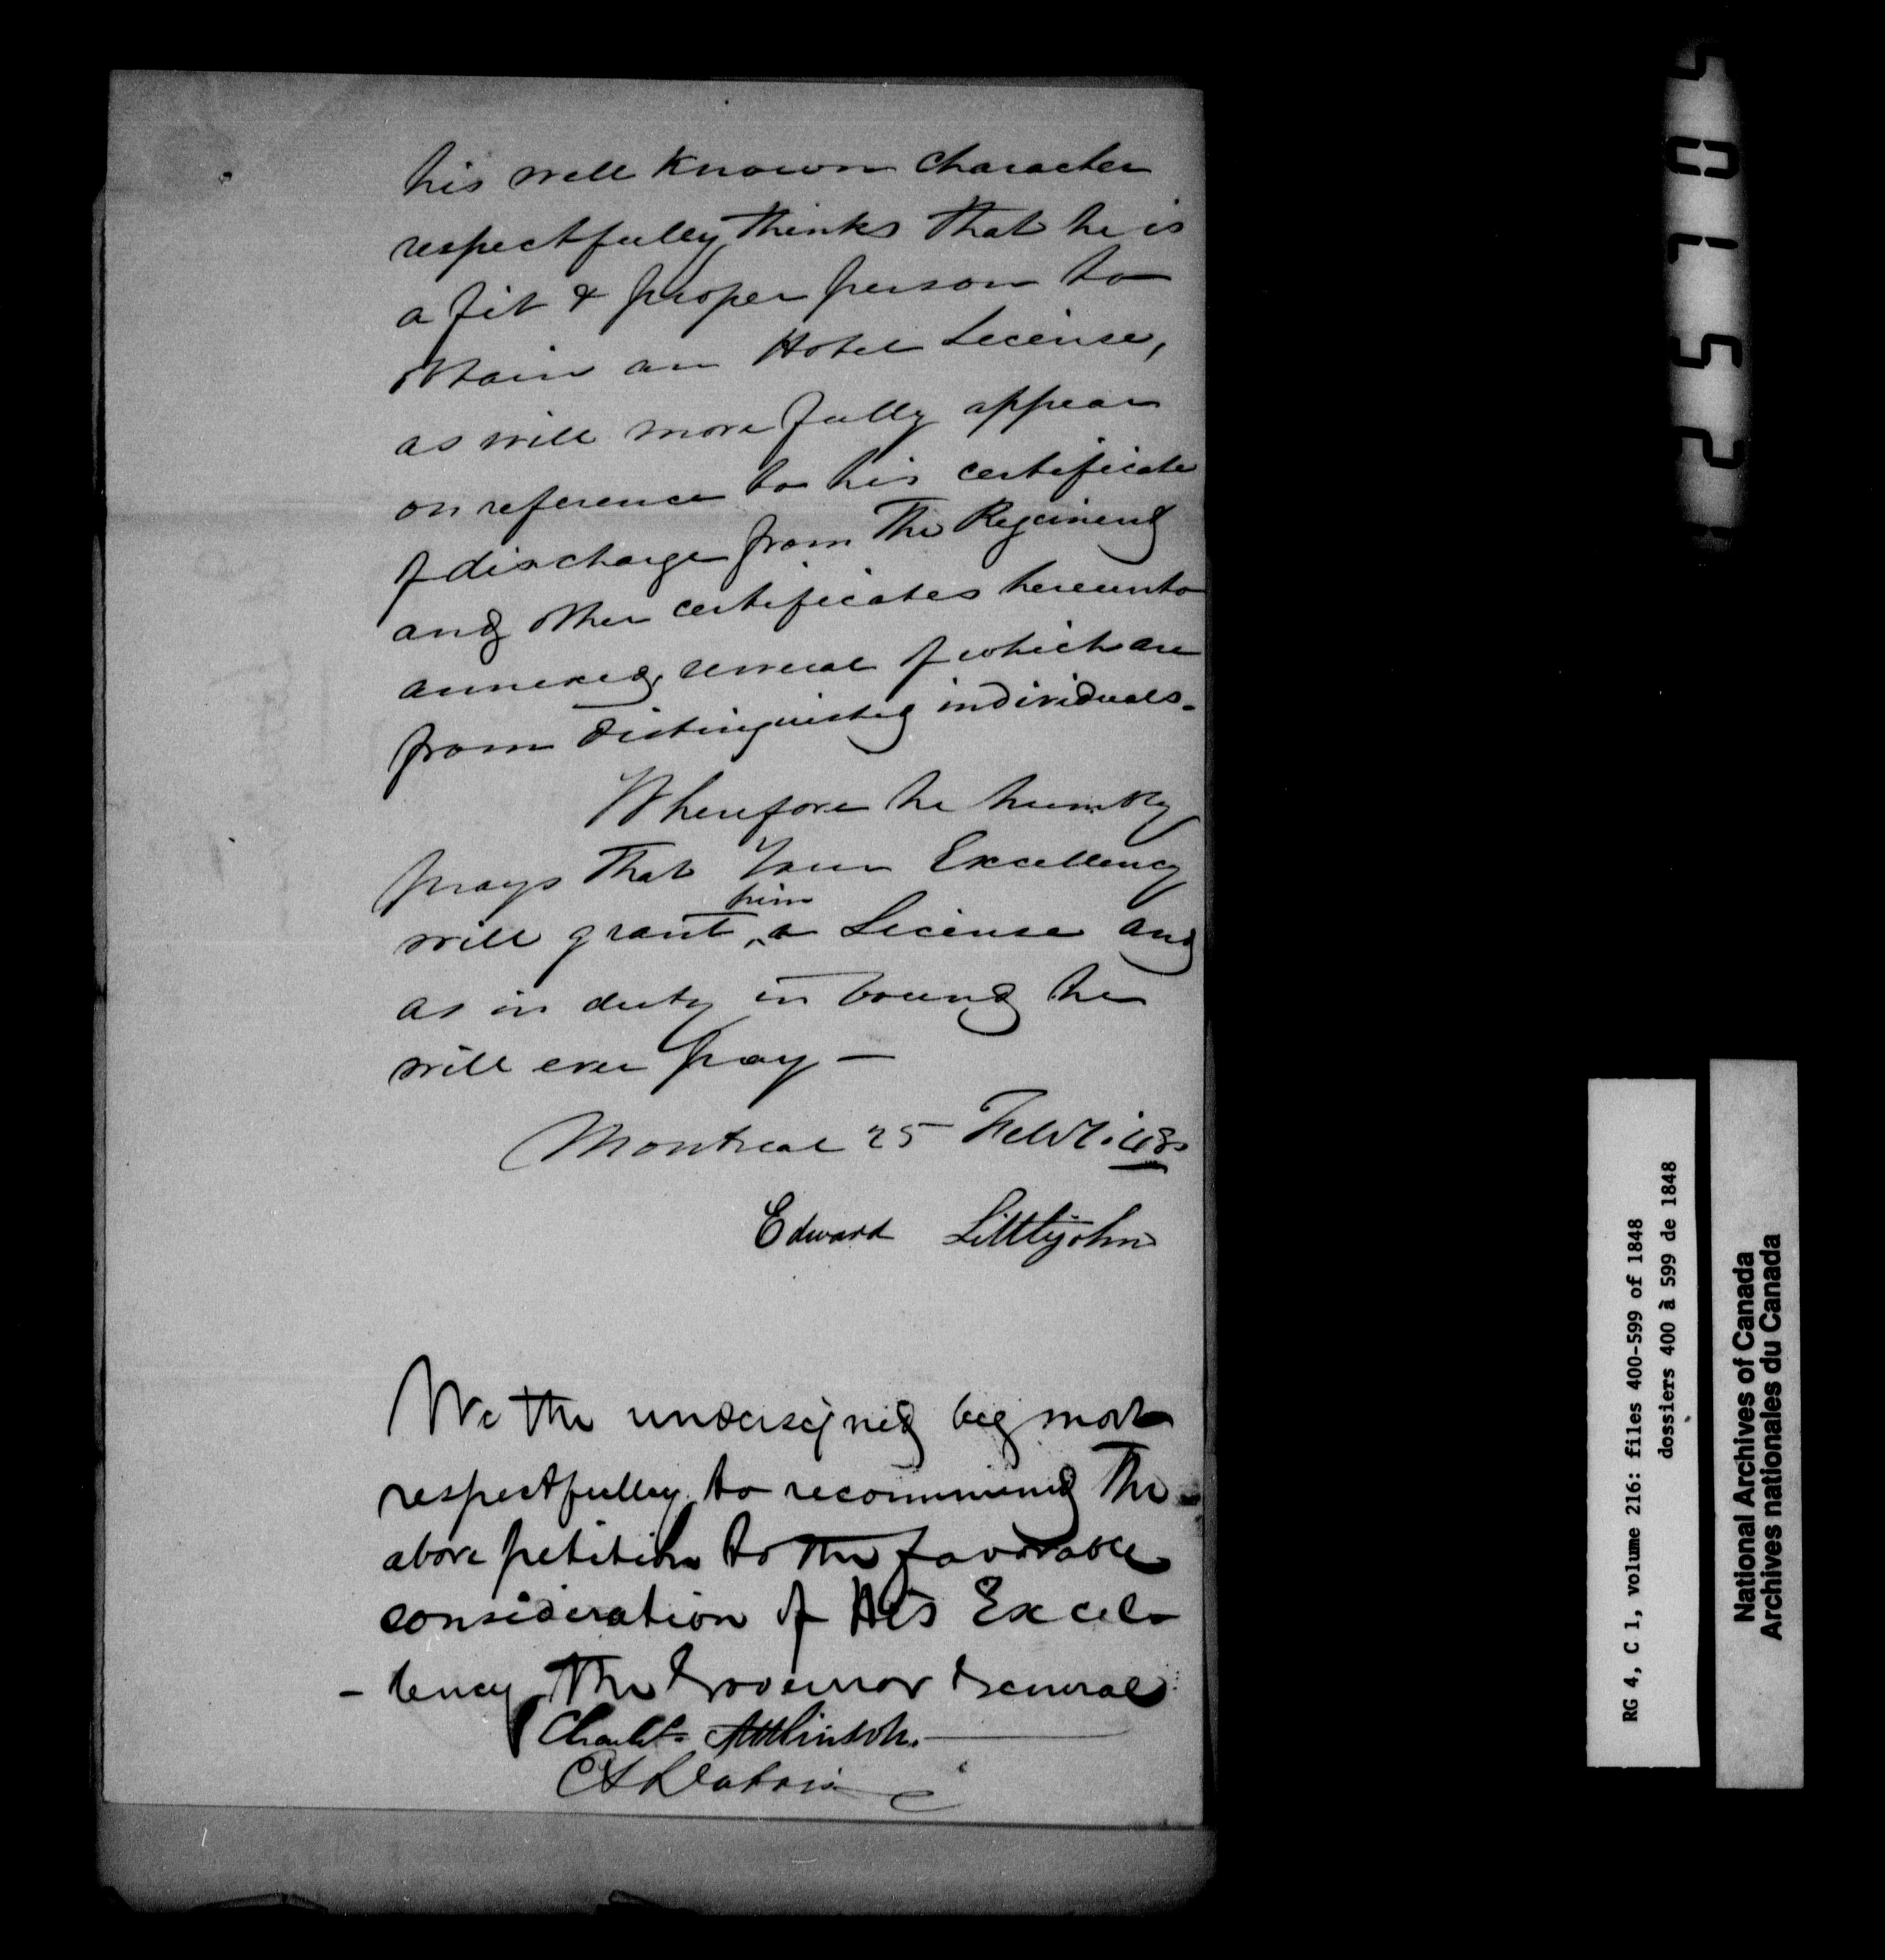 his well known character
respectfully thinks that he is
a fit & proper person to
obtain an Hotel License,
as will more fully appear
on reference to his certificate
of discharge from the Regiment
and other certificates hereunto
annexed, several of which are
from distinguished individuals.
Wherefore he humbly
prays that Your Excellency
will grant him a License and
as in duty in bound he
will ever pray —
Montreal 25
Edward Littlejohn
We the undersigned beg most
respectfully to recommend the
above petition to the favorable
consideration of His Excel-
-lency the Governor General
50152
RG 4, C 1, volume 216: files 400-599 of 1848
dossiers 400 à 599 de 1848
National Archives of Canada
Archives nationales du Canada